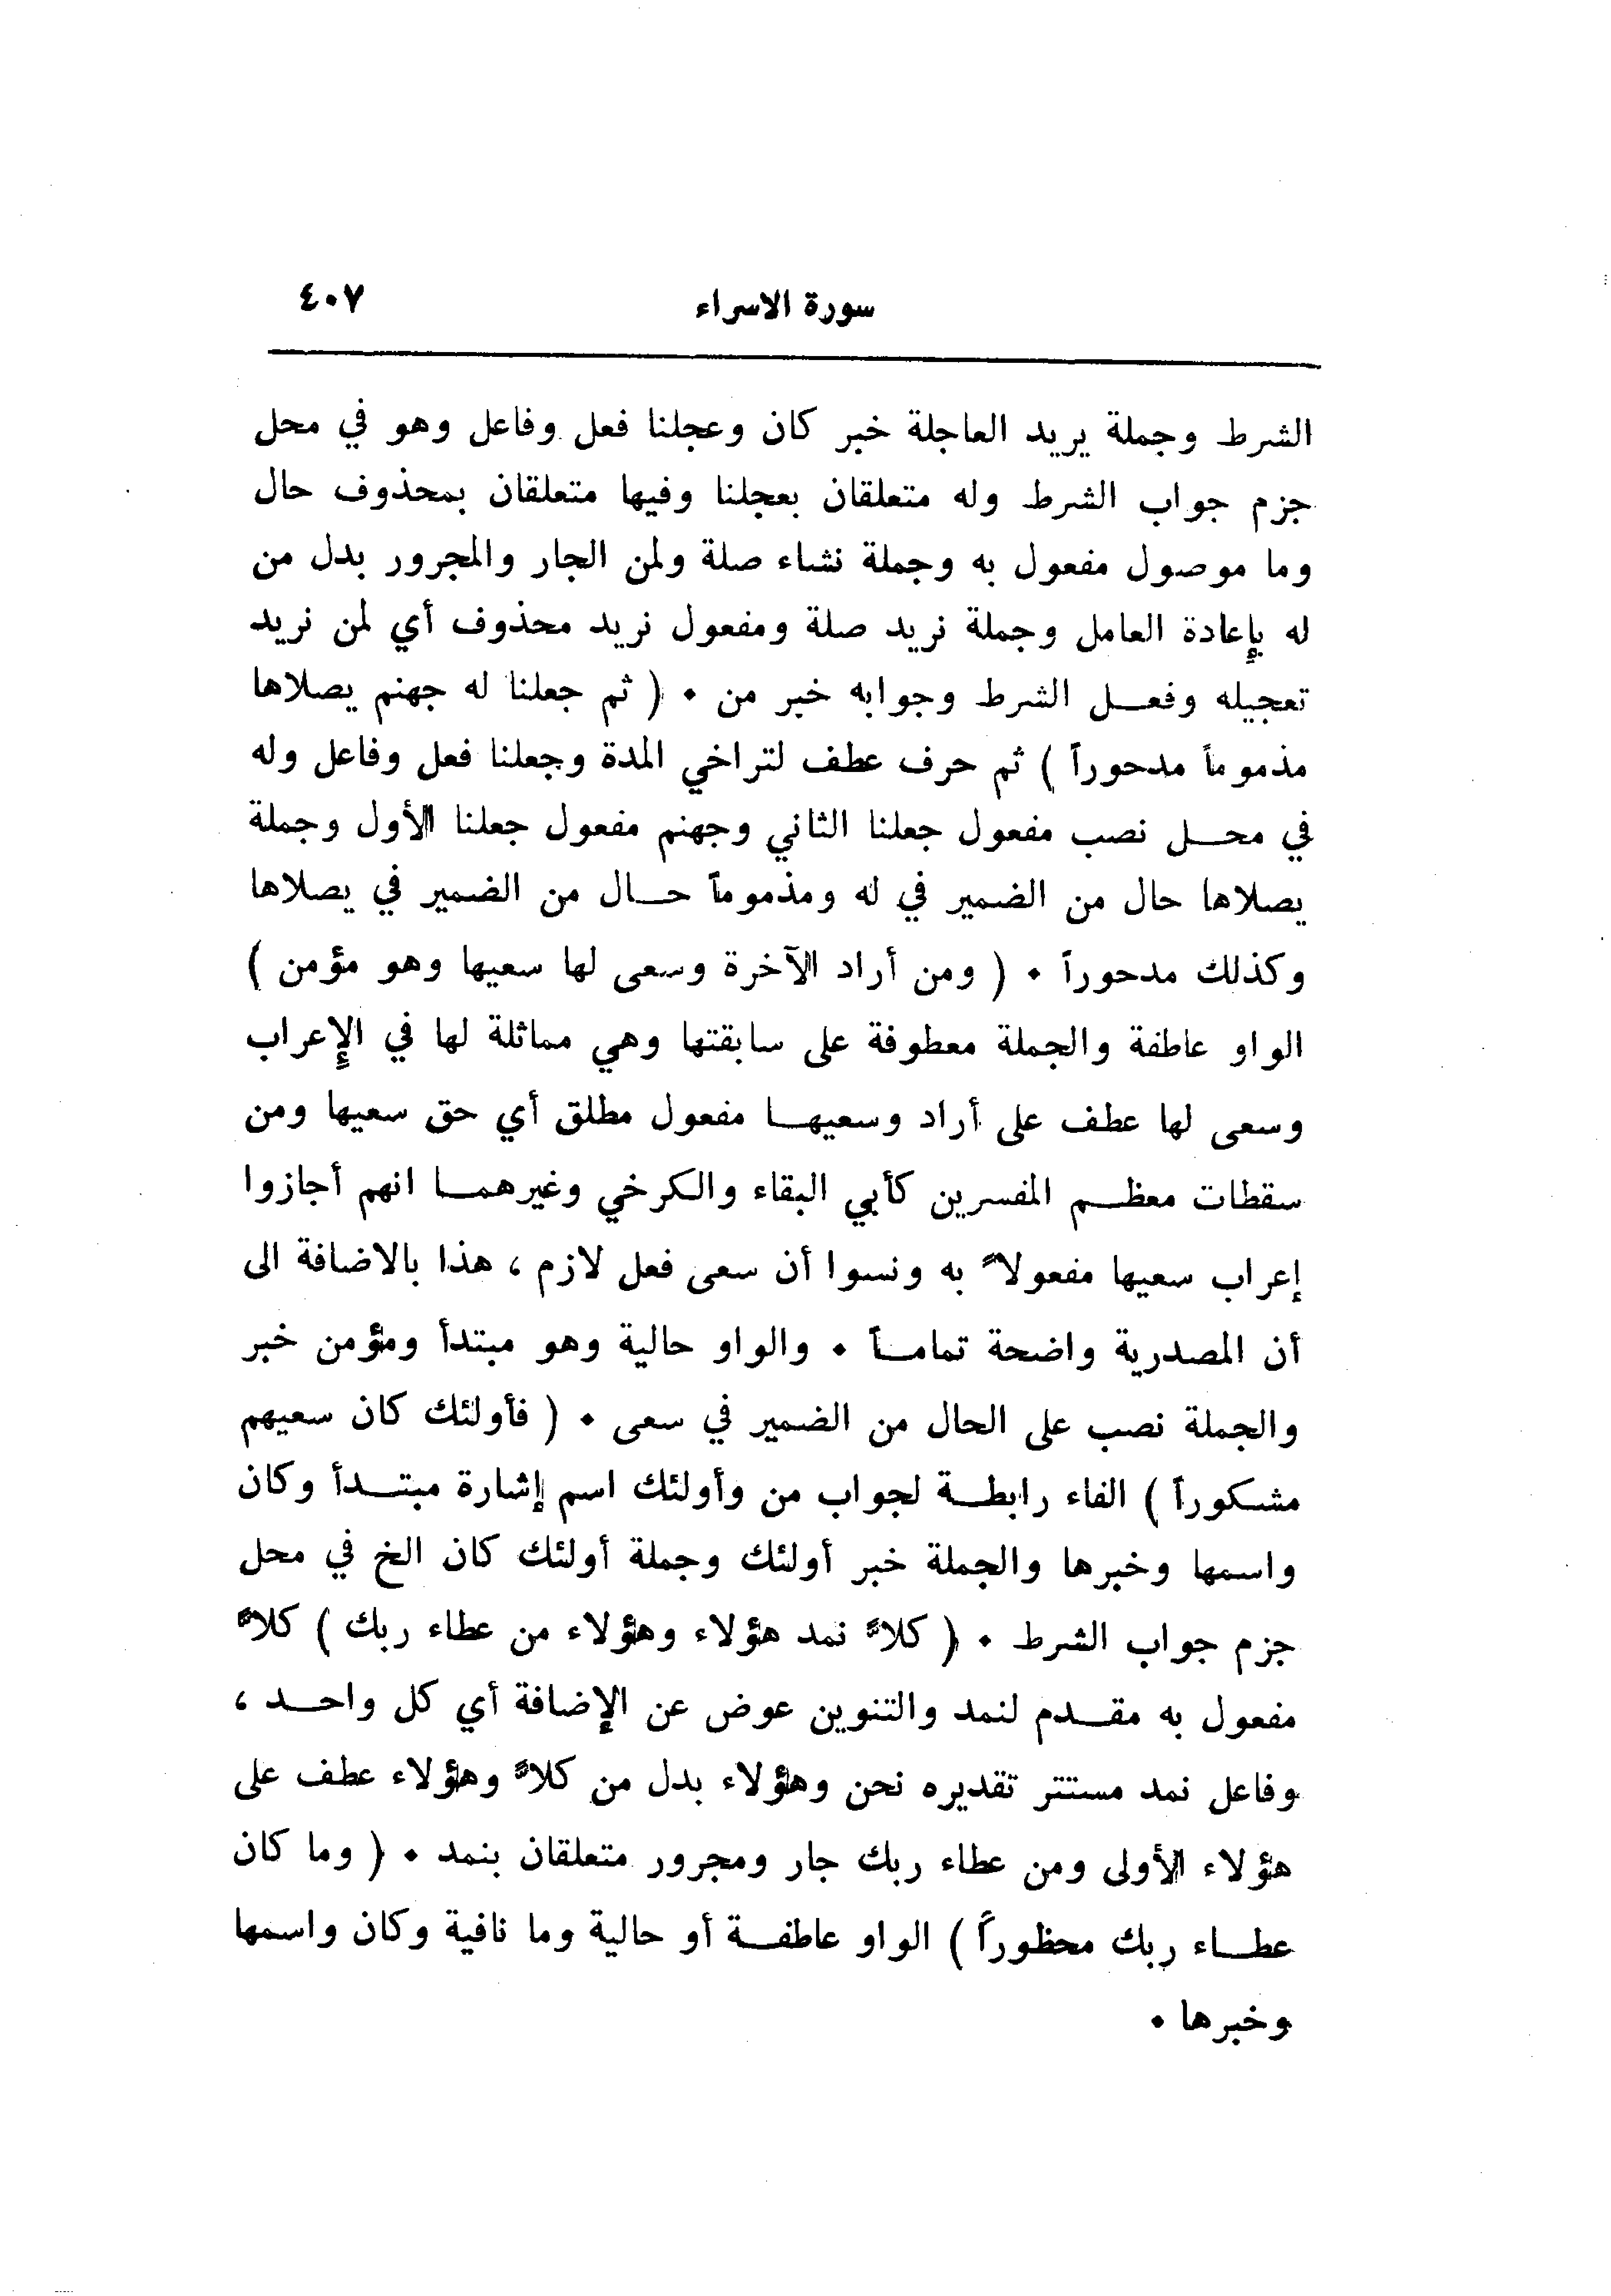 سورة الاسراء ٤٠٧
الشرط وجملة يريد العاجلة خبر كان وعجلنا فعل وفاعل وهو في محل
جزم جواب الشرط وله متعلقان بعجلنا وفيها متعلقان بمحذوف حال
وما موصول مفعول به وجملة نشاء صلة ولمن الجار والمجرور بدل من
له بإعادة العامل وجملة نريد صلة ومفعول نريد محذوف أي لمن نريد
تعجيله وفعــل الشرط وجوابه خبر من ٠ ( ثم جعلنا له جهنم يصلاها
مذموماً مدحوراً ) ثم حرف عطف لتراخي المدة وجعلنا فعل وفاعل وله
في محــل نصب مفعول جعلنا الثاني وجهنم مفعول جعلنا الأول وجملة
يصلاها حال من الضمير في له ومذموماً حــال من الضمير في يصلاها
وكذلك مدحوراً ٠ ( ومن أراد الآخرة وسعى لها سعيها وهو مؤمن )
الواو عاطفة والجملة معطوفة على سابقتها وهي مماثلة لها في الإعراب
وسعى لها عطف على أراد وسعيهــا مفعول مطلق أي حق سعيها ومن
سقطات معظــم المفسرين كأبي البقاء والكرخي وغيرهمــا انهم أجازوا
إعراب سعيها مفعولاً به ونسوا أن سعى فعل لازم ، هذا بالاضافة الى
أن المصدرية واضحة تمامــاً ٠ والواو حالية وهو مبتدأ ومؤمن خبر
والجملة نصب على الحال من الضمير في سعى ٠ ( فأولئك كان سعيهم
مشكوراً ) الفاء رابطــة لجواب من وأولئك اسم إشارة مبتــدأ وكان
واسمها وخبرها والجملة خبر أولئك وجملة أولئك كان الخ في محل
جزم جواب الشرط ٠ ( كلاً نمد هؤلاء وهؤلاء من عطاء ربك ) كلاً
مفعول به مقــدم لنمد والتنوين عوض عن الإضافة أي كل واحــد ،
وفاعل نمد مستتر تقديره نحن وهؤلاء بدل من كلاً وهؤلاء عطف على
هؤلاء الأولى ومن عطاء ربك جار ومجرور متعلقان بنمد ٠ ( وما كان
عطــاء ربك محظوراً ) الواو عاطفــة أو حالية وما نافية وكان واسمها
وخبرها ٠